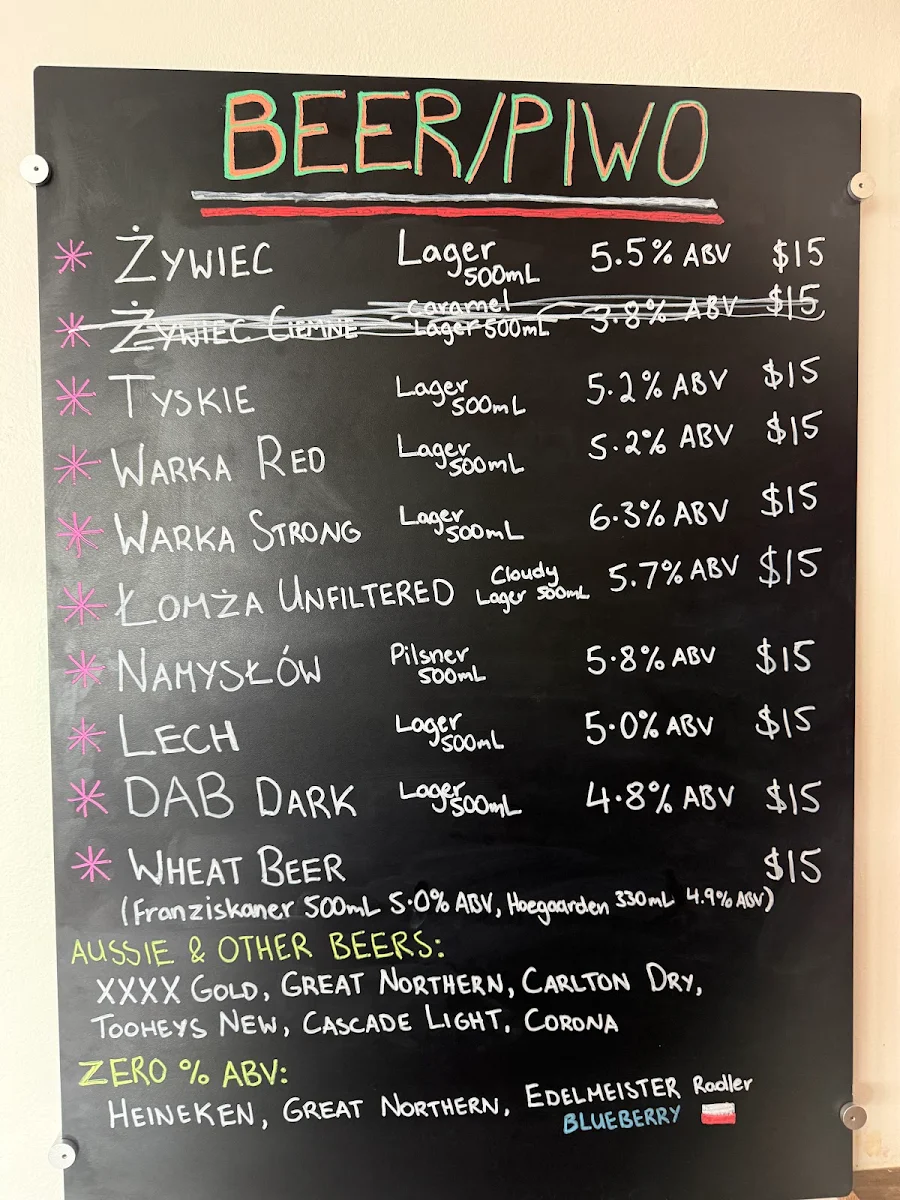 BEER/PIWO
* ŻYWIEC Lager 500mL 5.5% ABV $15
* ŻYWIEC CIEMNE caramel Lager 500mL 3.8% ABV $15
* TYSKIE Lager 500mL 5.2% ABV $15
* WARKA RED Lager 500mL 5.2% ABV $15
* WARKA STRONG Lager 500mL 6.3% ABV $15
* ŁOMŻA UNFILTERED Cloudy Lager 500mL 5.7% ABV $15
* NAMYSŁÓW Pilsner 500mL 5.8% ABV $15
* LECH Lager 500mL 5.0% ABV $15
* DAB DARK Lager 500mL 4.8% ABV $15
* WHEAT BEER $15
(Franziskaner 500mL 5.0% ABV, Hoegaarden 330mL 4.9% ABV)
AUSSIE & OTHER BEERS:
XXXX GOLD, GREAT NORTHERN, CARLTON DRY,
TOOHEYS NEW, CASCADE LIGHT, CORONA
ZERO % ABV:
HEINEKEN, GREAT NORTHERN, EDELMEISTER Radler
BLUEBERRY